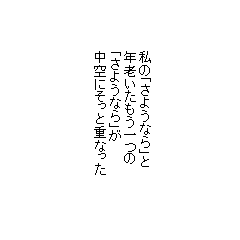 私の「さようなら」と
年老いたもう一つの
「さようなら」が
中空にそっと重なった